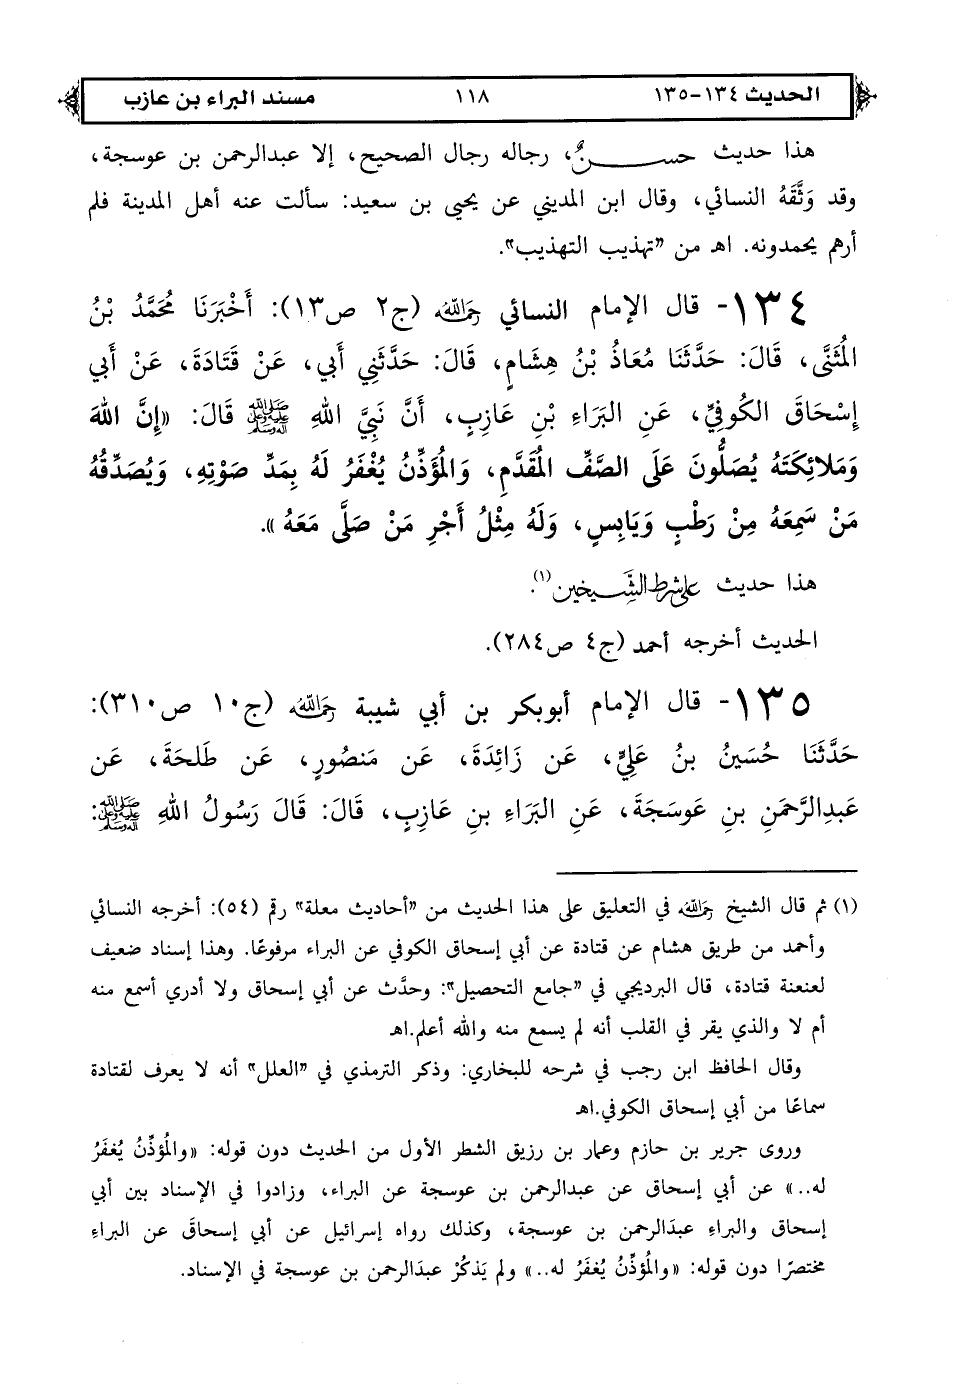 الحديث ١٣٤-١٣٥ ١١٨ مسند البراء بن عازب
هذا حديث حسنٌ، رجاله رجال الصحيح، إلا عبدالرحمن بن عوسجة،
وقد وَثَّقَهُ النسائي، وقال ابن المديني عن يحيى بن سعيد: سألت عنه أهل المدينة فلم
أرهم يحمدونه. اهـ من "تهذيب التهذيب".
١٣٤- قال الإمام النسائي رحمه الله (ج٢ ص١٣): أَخْبَرَنَا مُحَمَّدُ بْنُ
الْمُثَنَّى، قَالَ: حَدَّثَنَا مُعَاذُ بْنُ هِشَامٍ، قَالَ: حَدَّثَنِي أَبِي، عَنْ قَتَادَةَ، عَنْ أَبِي
إِسْحَاقَ الكُوفِيِّ، عَنِ البَرَاءِ بْنِ عَازِبٍ، أَنَّ نَبِيَّ اللهِ ﷺ قَالَ: «إِنَّ اللهَ
وَمَلَائِكَتَهُ يُصَلُّونَ عَلَى الصَّفِّ الْمُقَدَّمِ، وَالْمُؤَذِّنُ يُغْفَرُ لَهُ بِمَدِّ صَوْتِهِ، وَيُصَدِّقُهُ
مَنْ سَمِعَهُ مِنْ رَطْبٍ وَيَابِسٍ، وَلَهُ مِثْلُ أَجْرِ مَنْ صَلَّى مَعَهُ».
هذا حديث على شرط الشَّيخين(١).
الحديث أخرجه أحمد (ج٤ ص٢٨٤).
١٣٥- قال الإمام أبوبكر بن أبي شيبة رحمه الله (ج١٠ ص٣١٠):
حَدَّثَنَا حُسَينُ بنُ عَلِيٍّ، عَن زَائِدَةَ، عَن مَنصُورٍ، عَن طَلحَةَ، عَن
عَبدِالرَّحمَنِ بنِ عَوسَجَةَ، عَنِ البَرَاءِ بنِ عَازِبٍ، قَالَ: قَالَ رَسُولُ اللهِ ﷺ:
(١) ثم قال الشيخ رحمه الله في التعليق على هذا الحديث من "أحاديث معلة" رقم (٥٤): أخرجه النسائي
وأحمد من طريق هشام عن قتادة عن أبي إسحاق الكوفي عن البراء مرفوعًا. وهذا إسناد ضعيف
لعنعنة قتادة، قال البرديجي في "جامع التحصيل": وحدَّث عن أبي إسحاق ولا أدري أسمع منه
أم لا والذي يقر في القلب أنه لم يسمع منه والله أعلم.اهـ
وقال الحافظ ابن رجب في شرحه للبخاري: وذكر الترمذي في "العلل" أنه لا يعرف لقتادة
سماعًا من أبي إسحاق الكوفي.اهـ
وروى جرير بن حازم وعمار بن رزيق الشطر الأول من الحديث دون قوله: «والْمُؤذِّنُ يُغفَرُ
له..» عن أبي إسحاق عن عبدالرحمن بن عوسجة عن البراء، وزادوا في الإسناد بين أبي
إسحاق والبراءِ عبدَالرحمن بن عوسجة، وكذلك رواه إسرائيل عن أبي إسحاقَ عن البراءِ
مختصرًا دون قوله: «والْمُؤذِّنُ يُغفَرُ له..» ولم يَذكُرْ عبدَالرحمن بن عوسجة في الإسناد.